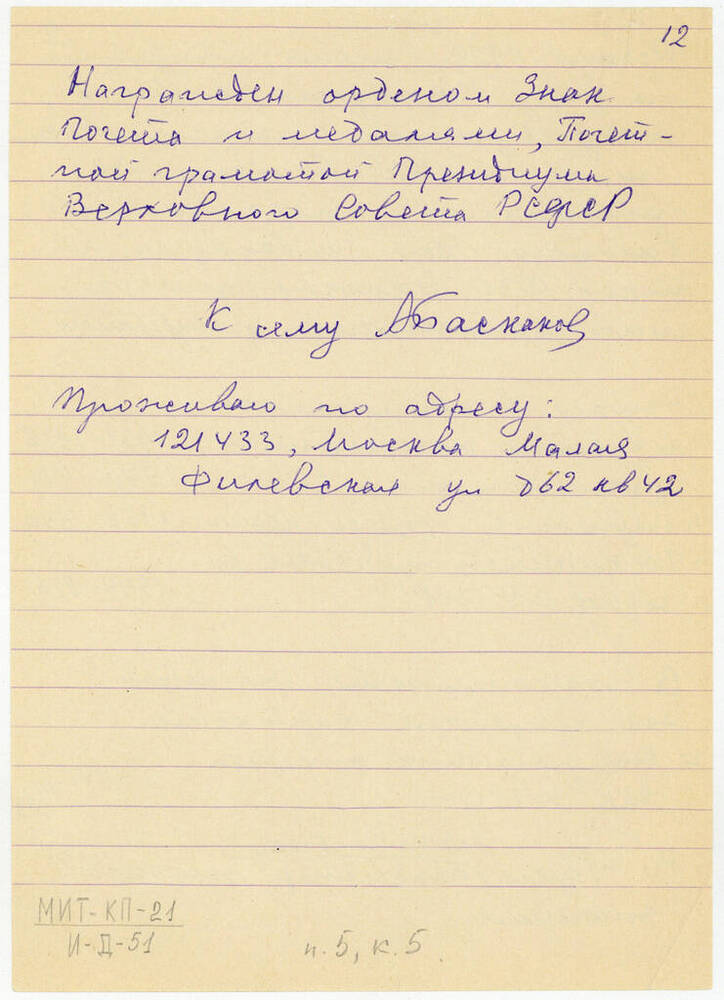 12
Награжден орденом Знак
Почета и медалями, Почет-
ной грамотой Президиума
Верховного Совета РСФСР
К сему АБаскаков
Проживаю по адресу:
121433, Москва Малая
Филевская ул д62 кв 42
МИТ-КП-21
И-Д-51
п.5, к.5.